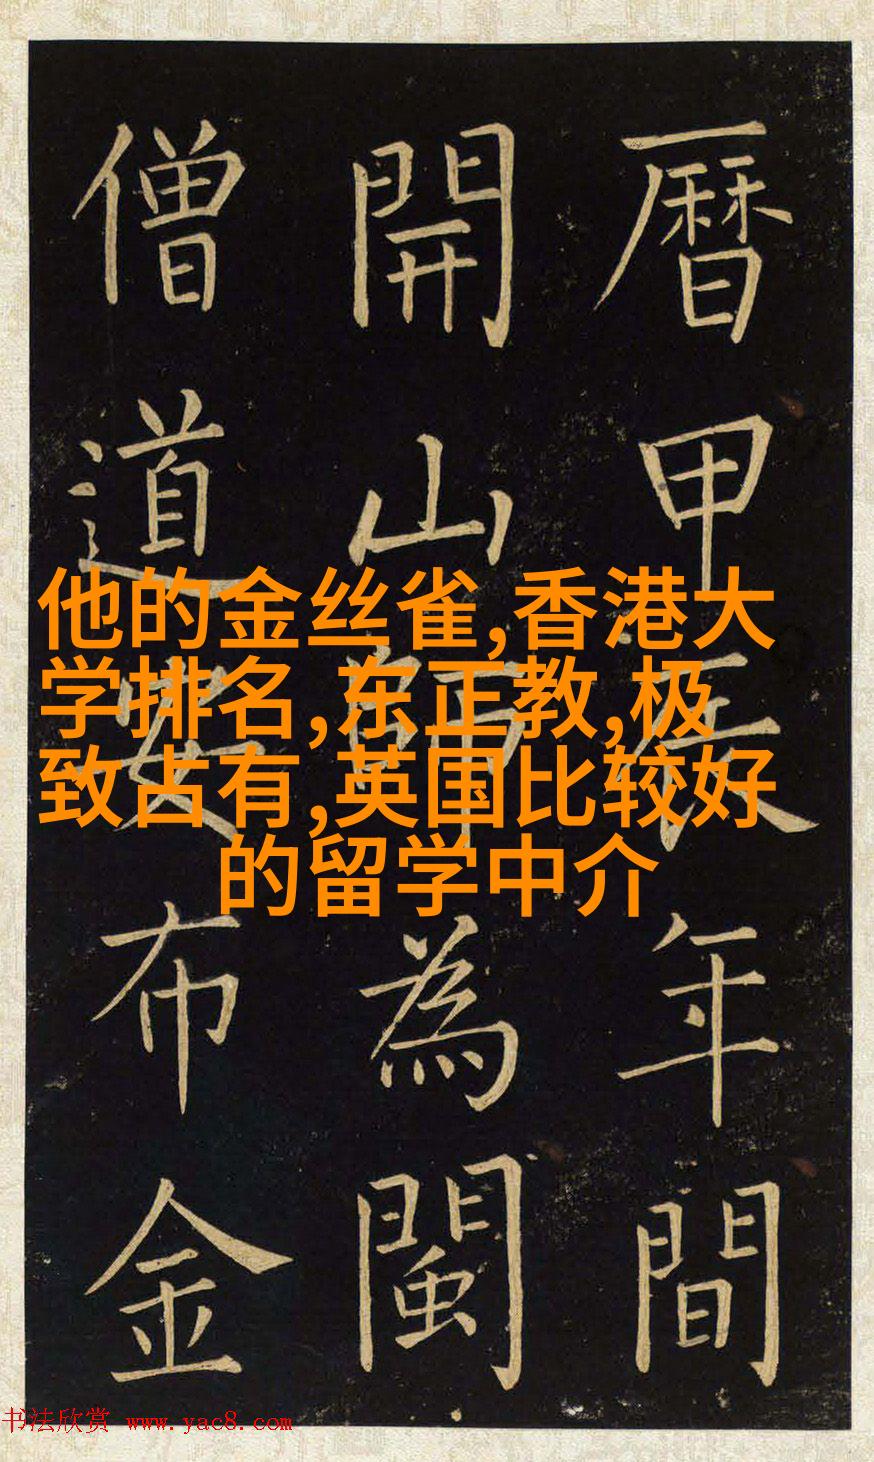 曆甲辰年間
開山師為閩
僧道布金
他的金丝雀,香港大
学排名,东正教,极
致占有,英国比较好
的留学中介
书法欣赏 www.yac8.com